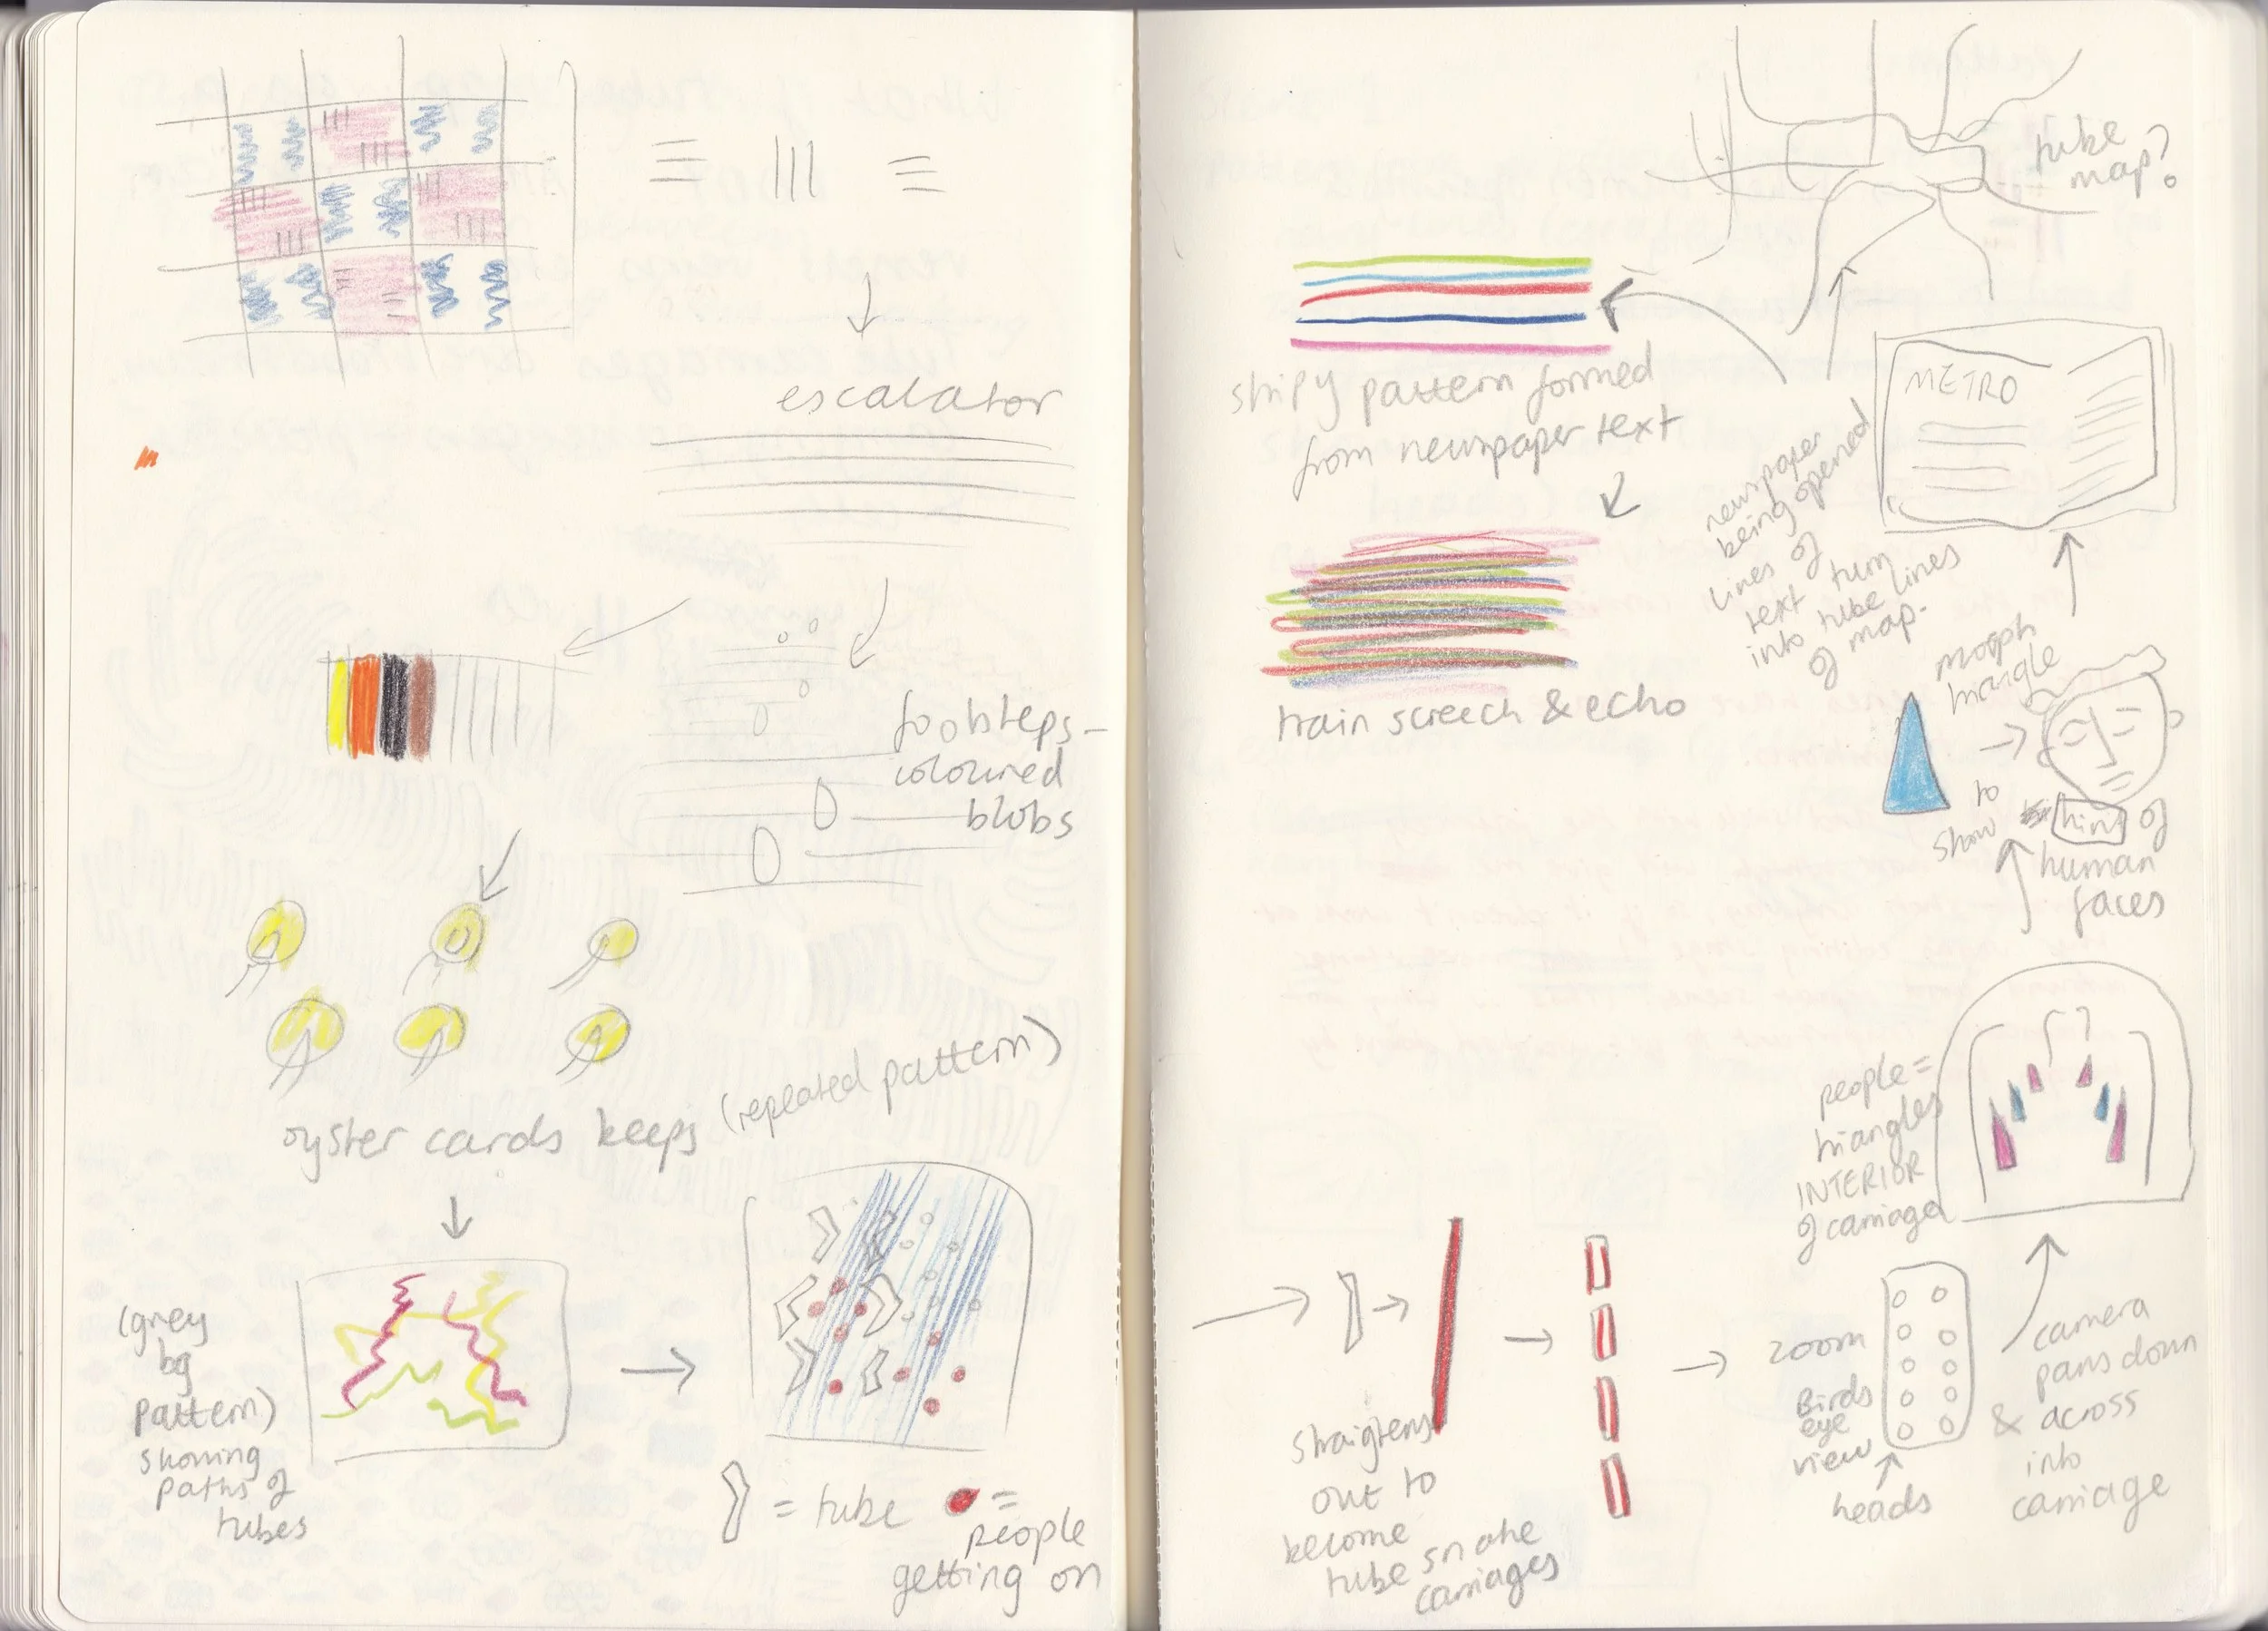 escalator
footsteps-
coloured
blobs
oyster cards keeps (repeated pattern)
(grey
bg
pattern)
showing
paths of
tubes
= tube
=
people
getting on
tube
map?
stripy pattern formed
from newspaper text
METRO
newspaper
being opened
lines of
text turn
into tube lines
of map.
train screech & echo
morph
triangle
to
show
hint of
human
faces
people =
triangles
INTERIOR
of carriage
straightens
out to
become
tube snake
carriages
zoom
Birds
eye
view
heads
camera
pans down
& across
into
carriage